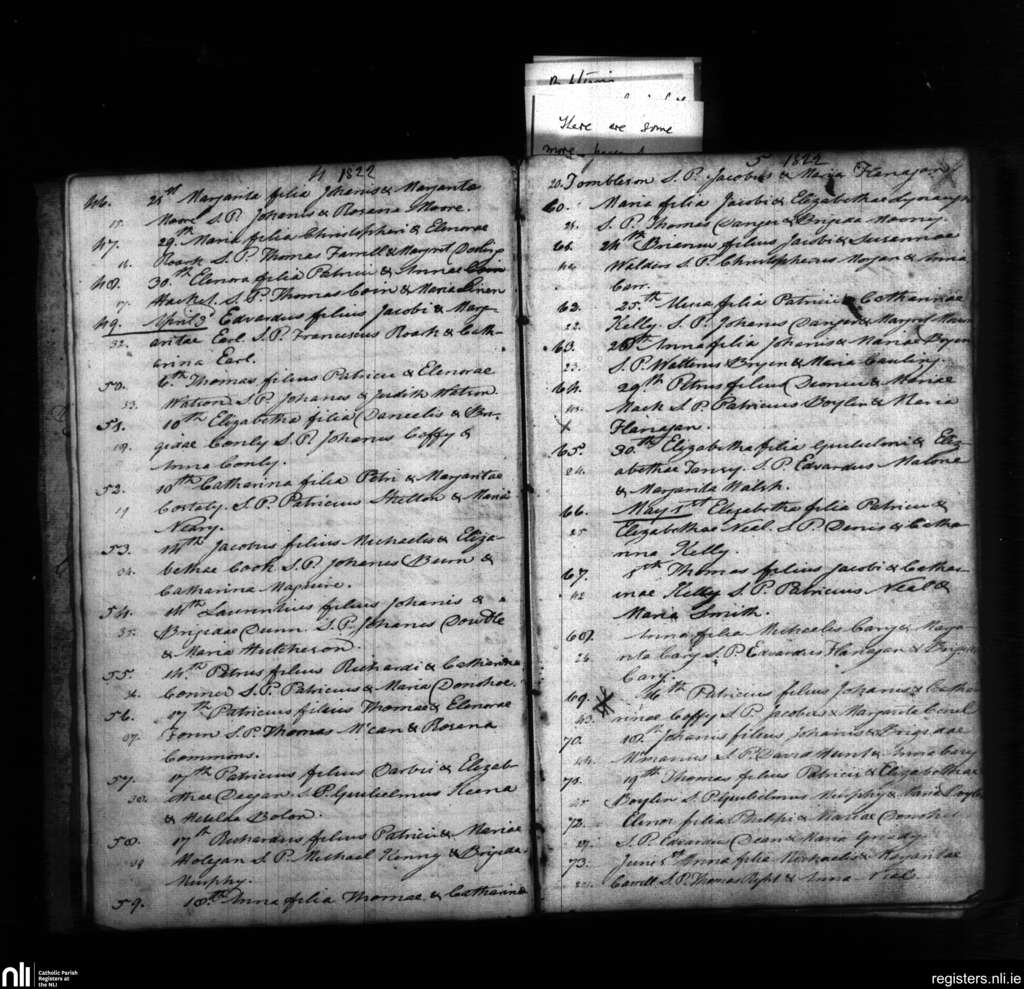 There are some
4 1822
46. 28th Margarita filia Johanis & Margarita
Moore S.P. Johanis & Rosana Moore.
47. 29th Maria filia Christopheri & Elenorae
Roark S.P. Thomas Farrell & Margret
48. 30th Elenora filia Patricii & Annae
S.P. Thomas Coin & Maria
49. April 3d Edvardus filius Jacobi & Marg-
32. aritae Earl S.P. Franciscus Roark & Cath-
arina Earl.
50. 6th Thomas filius Patricii & Elenorae
33. Watson S.P. Johanes & Judith Watson
51. 10th Elizabetha filia Danielis & Bri-
19. gidae Conly S.P. Johanes Coffy &
Anna Conly.
52. 10th Catharina filia Petri & Margaritae
S.P. Patricius & Maria
Neary.
53. 14th Jacobus filius Michaelis & Eliza-
34. bethae Cook S.P. Johanes Burn &
Catharina Maguire.
54. 14th filius Johanis &
35. Brigidae Dunn S.P. Johanes Dowdle
& Maria Hutcheson.
55. 14th Petrus filius Richardi & Catharinae
Conner S.P. Patricius & Maria Donohoe.
56. 17th Patricius filius Thomae & Elenorae
37. S.P. Thomas McCan & Rosana
Commons.
57. 17th Patricius filius Darbii & Elizab-
thae Deegan S.P. Gulielmus Keena
& Bolon.
58. 17th Richardus filius Patricii & Mariae
S.P. Michael Kenny & Brigida
Murphy.
59. 18th Anna filia Thomae & Catharinae
5 1822
20. Tombleson S.P. Jacobus & Maria Flanagan
60. Maria filia Jacobi & Elizabethae
21. S.P. Thomas & Brigida Mooney.
61. 24th Brianus filius Jacobi & Susannae
Walders S.P. Christopherus & Anna
Carr.
62. 25th Maria filia Patricii & Catharinae
22. Kelly S.P. Johanes & Margret
63. 28th Anna filia Johanis & Mariae Bryan
23. S.P. Walterus Bryen & Maria
64. 29th Petrus filius Dionisii & Mariae
Mack S.P. Patricius Boylen & Maria
X Flanagan.
65. 30th Elizabetha filia Gulielmi & Eliz-
24. abethae S.P. Edvardus Malone
& Margarita Walsh.
66. May 1st Elizabetha filia Patricii &
25. Elizabethae Neal S.P. Denis & Catha-
rina Kelly.
67. 5th Thomas filius Jacobi & Cathar-
42. inae Kelly S.P. Patricius Neal &
Maria Smith.
68. Anna filia Michaelis Cary & Marga-
26. rita Cary S.P. Edvardus Flanagan & Brigida
Cary.
69. 16th Patricius filius Johanis & Catha-
43. rinae Coffy S.P. Jacobus & Margarita
70. 18th Johanes filius Johanis & Brigidae
44. S.P. David Hunt & Anna Cary
71. 19th Thomas filius Patricii & Elizabethae
45. Boylen S.P. Gulielmus Murphy & Maria
72. Elinor filia Philipi & Mariae Donohoe
27. S.P. Edvardus Dean & Maria Grady.
73. June 1st Anna filia Michaelis & Margaritae
S.P. Thomas & Anna Neal
nli
Catholic Parish
Registers at
the NLI
registers.nli.ie